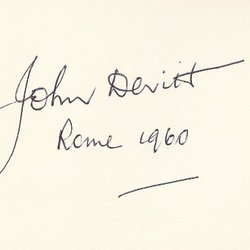 John Devitt
Rome 1960